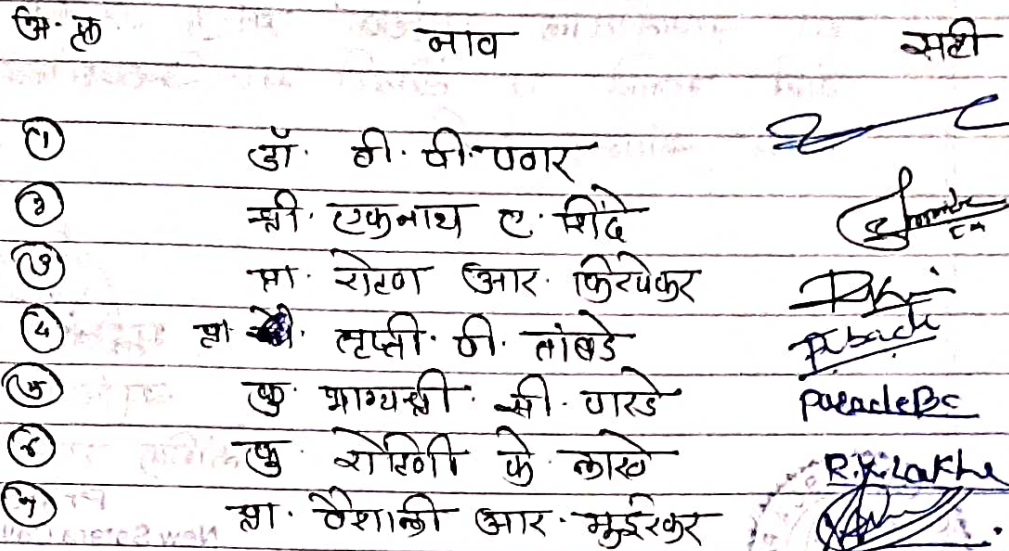 अ. क्र नाव सही
① डॉ. बी. पी. पगार
② श्री. एकनाथ ए. शिंदे
③ प्रा. रोहण आर. किरपेकर
④ प्रा. तृप्ती. बी. तांबडे
⑤ कु भाग्यश्री. सी. पारडे paradeBc
⑥ कु रोहिणी के लाखे R.K.Lakhe
⑦ प्रा. वैशाली आर. मुईरकर